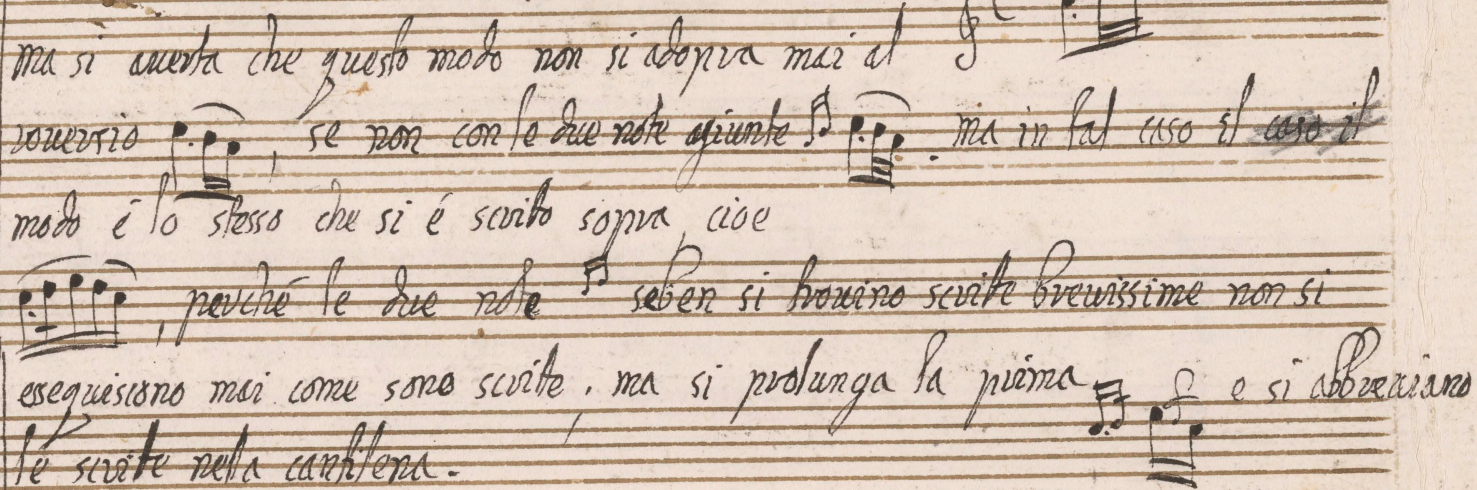 ma si auerta che questo modo non si adopra mai al
rouersio , se non con le due note agiunte . ma in tal caso il caso il
modo é lo stesso che si é scrito sopra, cioe
, perché le due note seben si trouino scritte breuissime non si
essequiscono mai come sono scritte . ma si prolunga la prima e si abbreuiano
le scritte nella cantilena .